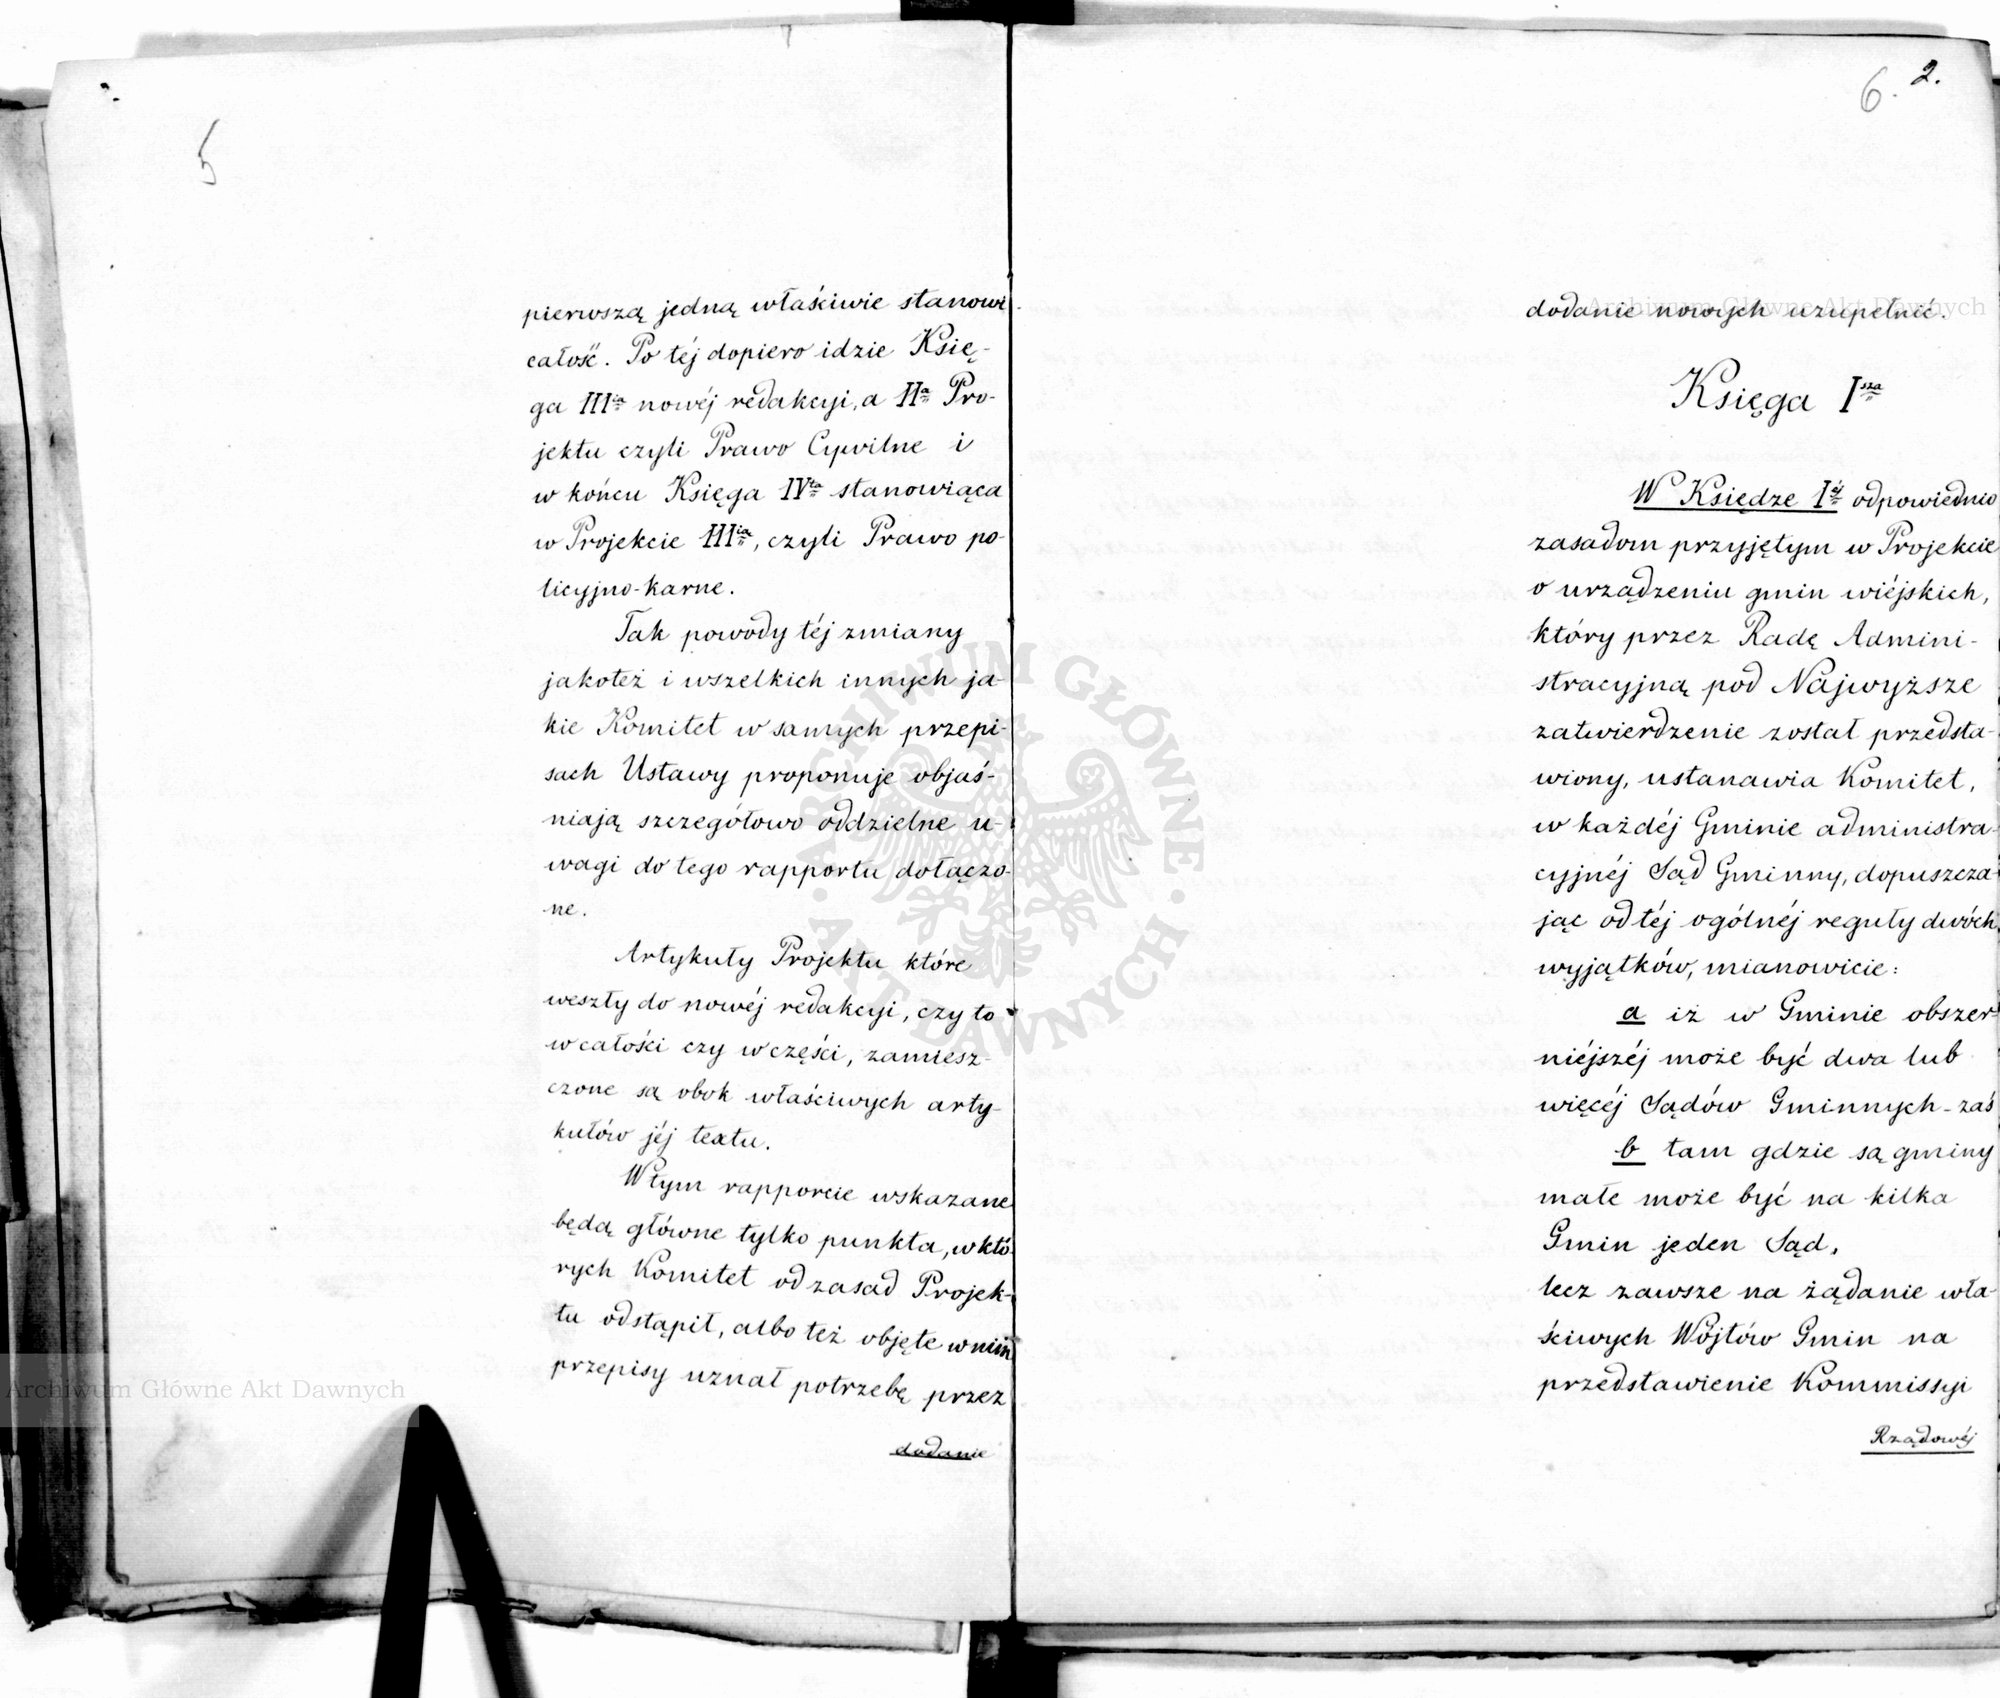 5
pierwszą jedną właściwie stanowi
całość. Po téj dopiero idzie Księ-
ga IIIia nowéj redakcyi, a IIa Pro-
jektu czyli Prawo Cywilne i
w końcu Księga IVta stanowiąca
w Projekcie IIIia, czyli Prawo po-
licyjno-karne.
Tak powody téj zmiany
jakoteż i wszelkich innych ja-
kie Komitet w samych przepi-
sach Ustawy proponuje objaś-
niają szczegółowo oddzielne u-
wagi do tego rapportu dołączo-
ne.
Artykuły Projektu które
weszły do nowéj redakcyi, czy to
w całości czy w części, zamiesz-
czone są obok właściwych arty-
kułów jéj textu.
W tym rapporcie wskazane
będą główne tylko punkta, w któ-
rych Komitet od zasad Projek-
tu odstąpił, albo też objęte w nim
przepisy uznał potrzebę przez
dodanie
6. 2.
dodanie nowych uzupełnić.
Księga Isza
W Księdze Iéj odpowiednio
zasadom przyjętym w Projekcie
o urządzeniu gmin wiéjskich,
który przez Radę Admini-
stracyjną pod Najwyższe
zatwierdzenie został przedsta-
wiony, ustanawia Komitet,
w każdéj Gminie administra-
cyjnéj Sąd Gminny, dopuszcza-
jąc od téj ogólnéj reguły dwóch
wyjątków, mianowicie:
a iż w Gminie obszer-
niéjszéj może być dwa lub
więcéj Sądów Gminnych - zaś
b tam gdzie są gminy
małe może być na kilka
Gmin jeden Sąd,
lecz zawsze na żądanie wła-
ściwych Wójtów Gmin na
przedstawienie Kommissyi
Rządowéj
Archiwum Główne Akt Dawnych
Archiwum Główne Akt Dawnych
ARCHIWUM GŁÓWNE · AKT DAWNYCH ·